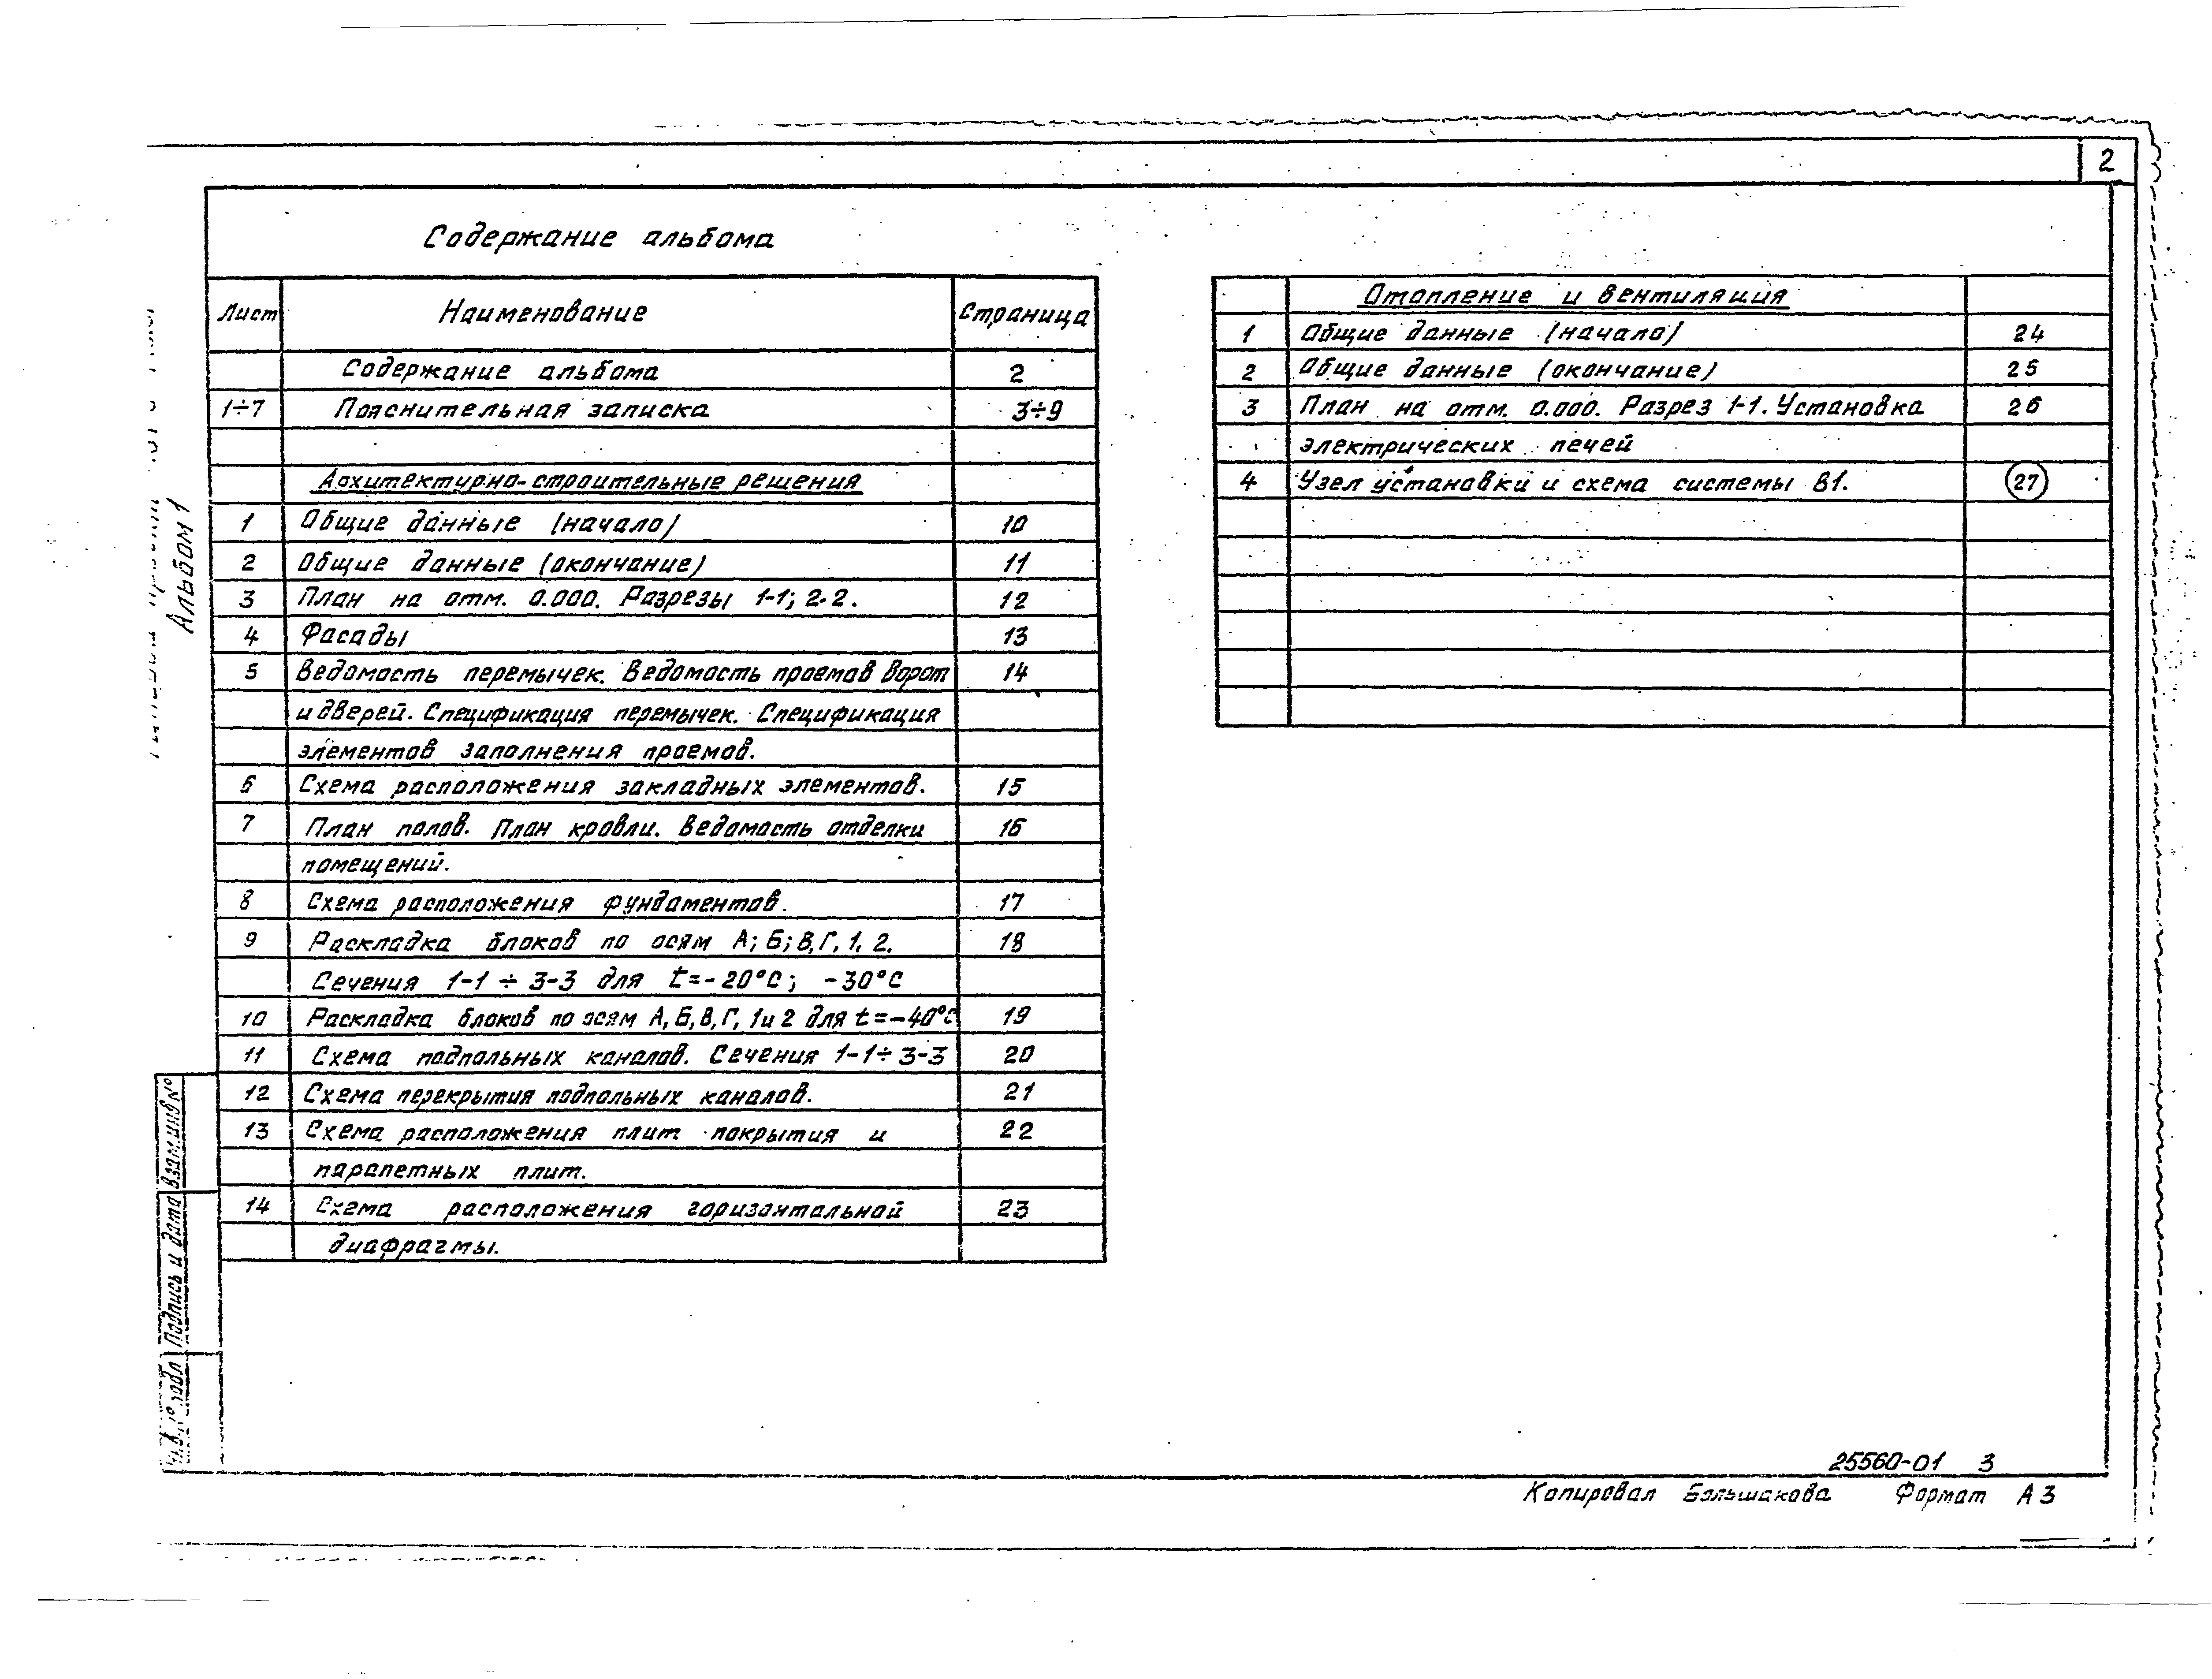 2
Содержание альбома
Лист Наименование Страница
Содержание альбома 2
1÷7 Пояснительная записка 3÷9
Архитектурно-строительные решения
1 Общие данные (начало) 10
2 Общие данные (окончание) 11
3 План на отм. 0.000. Разрезы 1-1; 2-2. 12
4 Фасады 13
5 Ведомость перемычек. Ведомость проемов ворот 14
и дверей. Спецификация перемычек. Спецификация
элементов заполнения проемов.
6 Схема расположения закладных элементов. 15
7 План полов. План кровли. Ведомость отделки 16
помещений.
8 Схема расположения фундаментов. 17
9 Раскладка блоков по осям А; Б; В, Г, 1, 2. 18
Сечения 1-1 ÷ 3-3 для t=-20°C; -30°C
10 Раскладка блоков по осям А, Б, В, Г, 1 и 2 для t=-40°C 19
11 Схема подпольных каналов. Сечения 1-1÷3-3 20
12 Схема перекрытия подпольных каналов. 21
13 Схема расположения плит покрытия и 22
парапетных плит.
14 Схема расположения горизонтальной 23
диафрагмы.
Отопление и вентиляция
1 Общие данные (начало) 24
2 Общие данные (окончание) 25
3 План на отм. 0.000. Разрез 1-1. Установка 26
электрических печей
4 Узел установки и схема системы В1. 27
Альбом 1
Взам. инв №
Подпись и дата
подл
25560-01 3
Копировал Большакова Формат А3